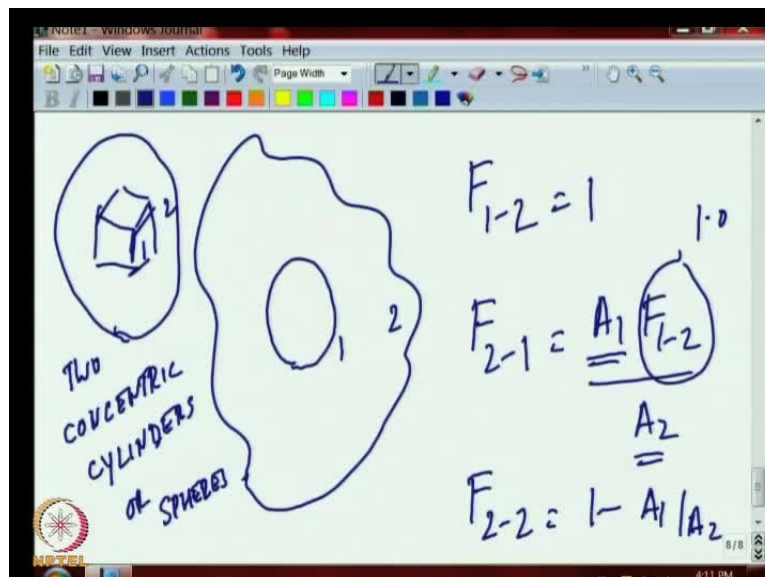 Note1 - Windows Journal
File Edit View Insert Actions Tools Help
Page Width
B I
2
1
1
2
TWO
CONCENTRIC
CYLINDERS
OR SPHERES
F1-2 = 1
1.0
F2-1 = A1 F1-2
A2
F2-2 = 1 - A1/A2
8/8
NPTEL
4:11 PM